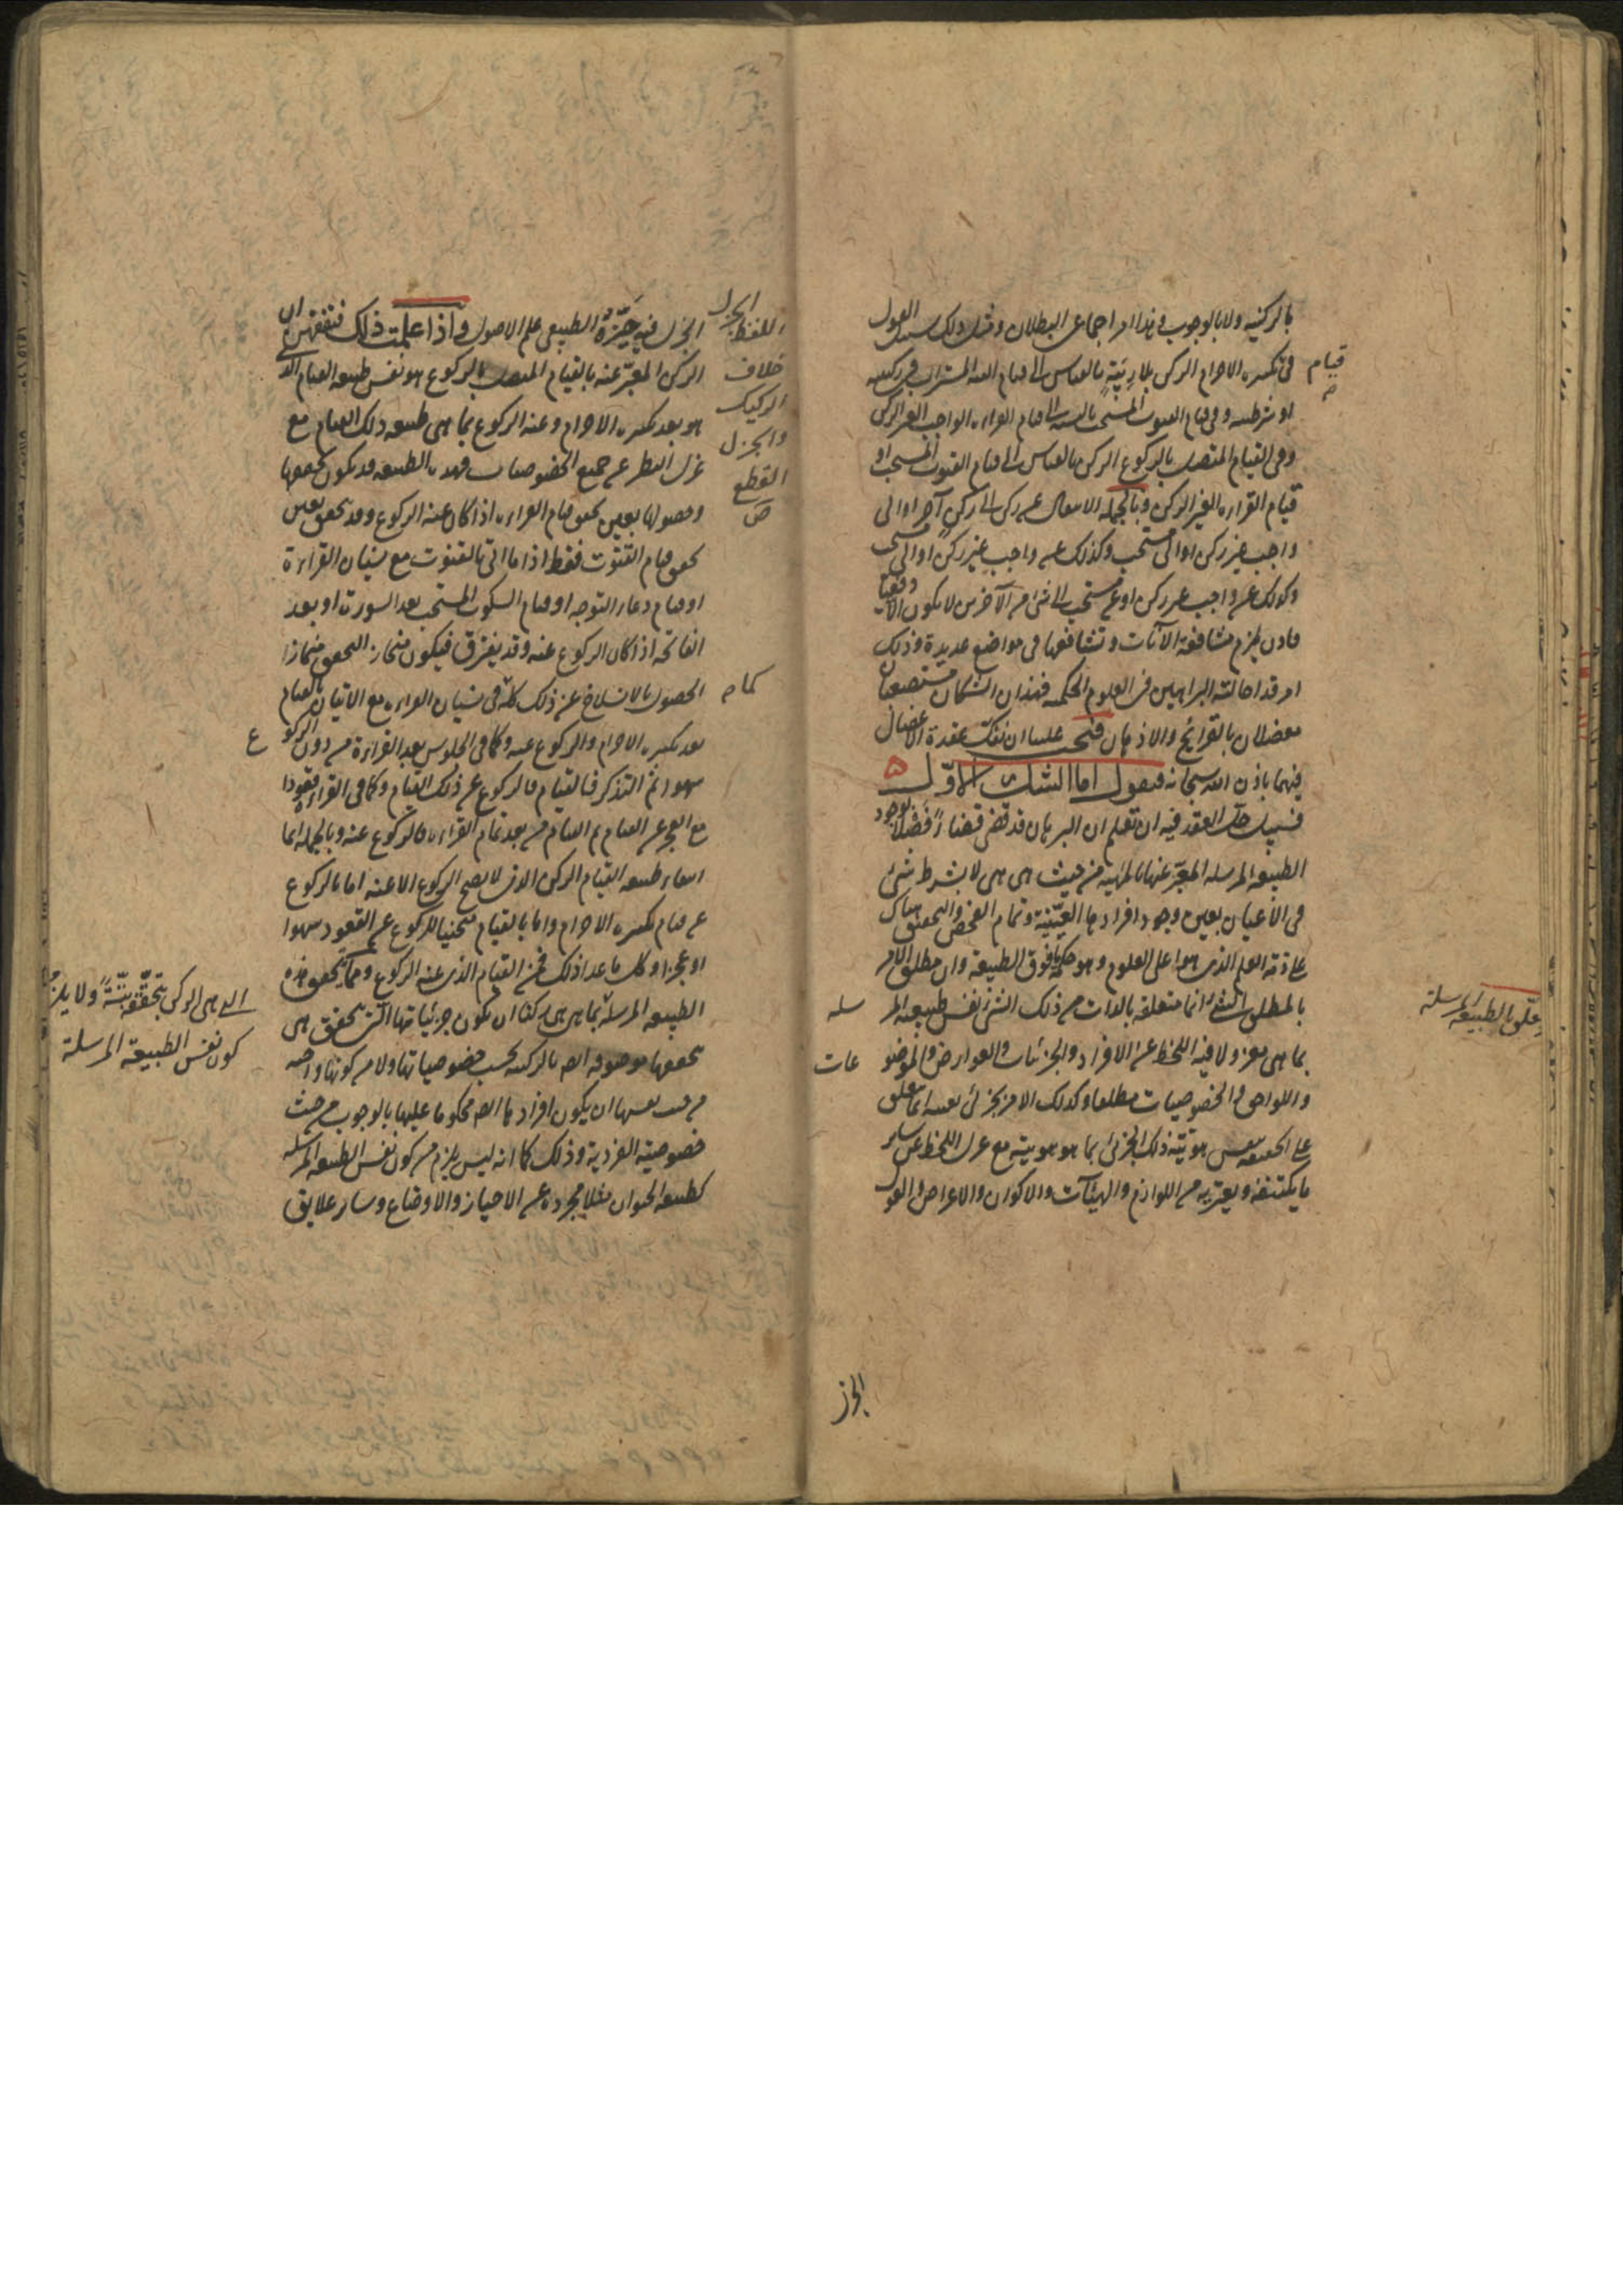 بالركنية ولا بالوجوب فى هذا امر اجماعى البطلان ومثل ذلك سبيل القول
قيام
فى تكبيرة الاحرام الركن بلا رِيبَةٍ بالقياس الى قيام النية
او شرطيته وفى قيام القنوت المستحب بالنسبة الى قيام القراءة الواجب الغير الركن
وفى القيام المتصل بالركوع الركن بالقياس الى قيام القنوت المستحب او
قيام القراءة الغير الركن وبالجملة الانتقال عن ركن الى ركن آخر او الى
واجب غير ركن او الى مستحب وكذلك عن واجب غير ركن او الى
وكذلك عن واجب غير ركن او عن مستحب الى شئ من الآخرين لا يكون الا دفعيا
فاذن يلزم مشافعة الآنات وتشافعها فى مواضع عديدة وذلك
امر قد احالته البراهين فى العلوم الحكمية فهذان الشكان مستصعبان
معضلان بالقرائح والاذهان فيجب علينا ان نفكّ عقدة الاعضال
فيهما باذن الله سبحانه فنقول اما الشك الاوّل
فسبيل حلّ العقد فيه ان تعلم ان البرهان قد قضى قضاءً فصلا بوجود
الطبيعة المرسلة المعبّر عنها بالمهية من حيث هى هى لا بشرط شئ
فى الأعيان بعين وجود افرادها العينيّة وتمام الفحص والتحقيق هناك
على ذمة العلم الذى هو اعلى العلوم وهو حكمة ما فوق الطبيعة وان مطلق الامر
بالمطلق الشئ انما متعلقه بالذات من ذلك الشئ نفس طبيعته المر
سلة
تعلّق بالطبيعة المرسلة
بما هى معزولا فيه اللحظ عن الافراد والجزئيات والعوارض والموضو
عات
واللواحق والخصوصيات مطلقا وكذلك الامر بجزئى بعينه انما تعلق
على الحقيقة بنفس هويّة ذلك الجزئى بما هو هويته مع عزل اللحظ عن ساير
ما يكتنفه ويعتريه من اللوازم والهيئآت والاكوان والاعراض والقول
الجز
الجزل فيه حَيّزَهُ الطبيعى علم الاصول واذا علمت ذلك فتفقّهن ان
الركن المعبّر عنه بالقيام المتصل بالركوع هو نفس طبيعة القيام الذى
هو بعد تكبيرة الاحرام وعنه الركوع بما هى طبيعة ذلك القيام مع
عزل النظر عن جميع الخصوصيات فهذه الطبيعة قد يكون تحققها
وحصولها بعين تحقق قيام القراءة اذا كان عنه الركوع وقد تتحقق بعين
تحقق قيام القنوت فقط اذا ما اتى بالقنوت مع نسيان القراءة
او قيام دعاء التوجه او قيام السكوت المستحب بعد السورة او بعد
الفاتحة اذا كان الركوع عنه وقد يفترق فيكون منحاز التحقق ممتاز
الحصول بالانسلاخ عن ذلك كله فى نسيان القراءة مع الاتيان بالقيام
كما
بعد تكبيرة الاحرام والركوع عنه وكما فى الجلوس بعد القراءة من دون الركو
ع
سهوا ثم التذكر فالقيام فالركوع عن ذلك القيام وكما فى القراءة قعودا
مع العجز عن القيام ثم القيام من بعد تمام القراءة فالركوع عنه وبالجملة انما
انتفاء طبيعة القيام الركن الذى لا يصح الركوع الا عنه اما بالركوع
عن قيام تكبيرة الاحرام واما بالقيام منحنيا للركوع عن القعود سهوا
او عجزا وكل ما عدا ذلك فمن القيام الذى عنه الركوع ومما يتحقق فيه
الطبيعة المرسلة بما هى هى ركنا ان يكون جزئياتها التى يتحقق هى
التى هى الركن بتحقّقه بتّةً ولا يلزم
كون نفس الطبيعة المرسلة
بتحققها موصوفة ايضا بالركنية بحسب خصوصياتها ولا من كونها واجبة
من حيث نفسها ان يكون افرادها ايضا محكوما عليها بالوجوب من حيث
خصوصية الفردية وذلك كما انه ليس يلزم من كون نفس الطبيعة المرسلة
كطبيعة الحيوان مثلا مجردة عن الاحياز والاوضاع وساير علايق
اللفظ الجزل
خلاف
الركيك
والجزل
القطع
ص